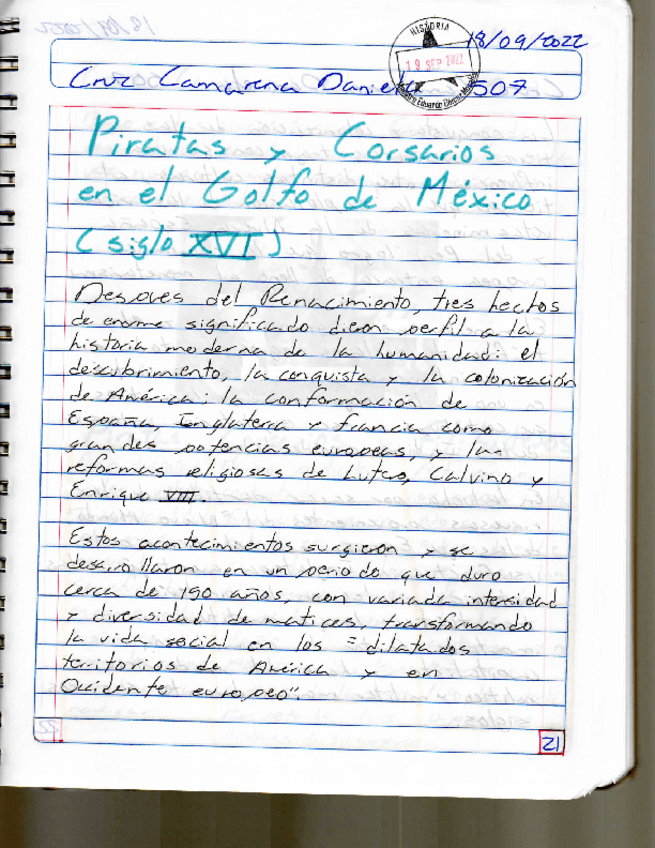 18/09/2022
HISTORIA
19 SEP 2022
Eduardo
Cruz Camarena Daniela 507
Piratas y Corsarios
en el Golfo de México
(siglo XVI)
Despues del Renacimiento, tres hechos
de enorme significado dieron perfil a la
historia moderna de la humanidad: el
descubrimiento, la conquista y la colonización
de América; la conformación de
España, Inglaterra y francia como
grandes potencias europeas, y las
reformas religiosas de Lutero, Calvino y
Enrique VIII.
Estos acontecimientos surgieron y se
desarrollaron en un periodo que duro
cerca de 190 años, con variada intensidad
y diversidad de matices, transformando
la vida social en los "dilatados
territorios de América y en
Occidente europeo".
21